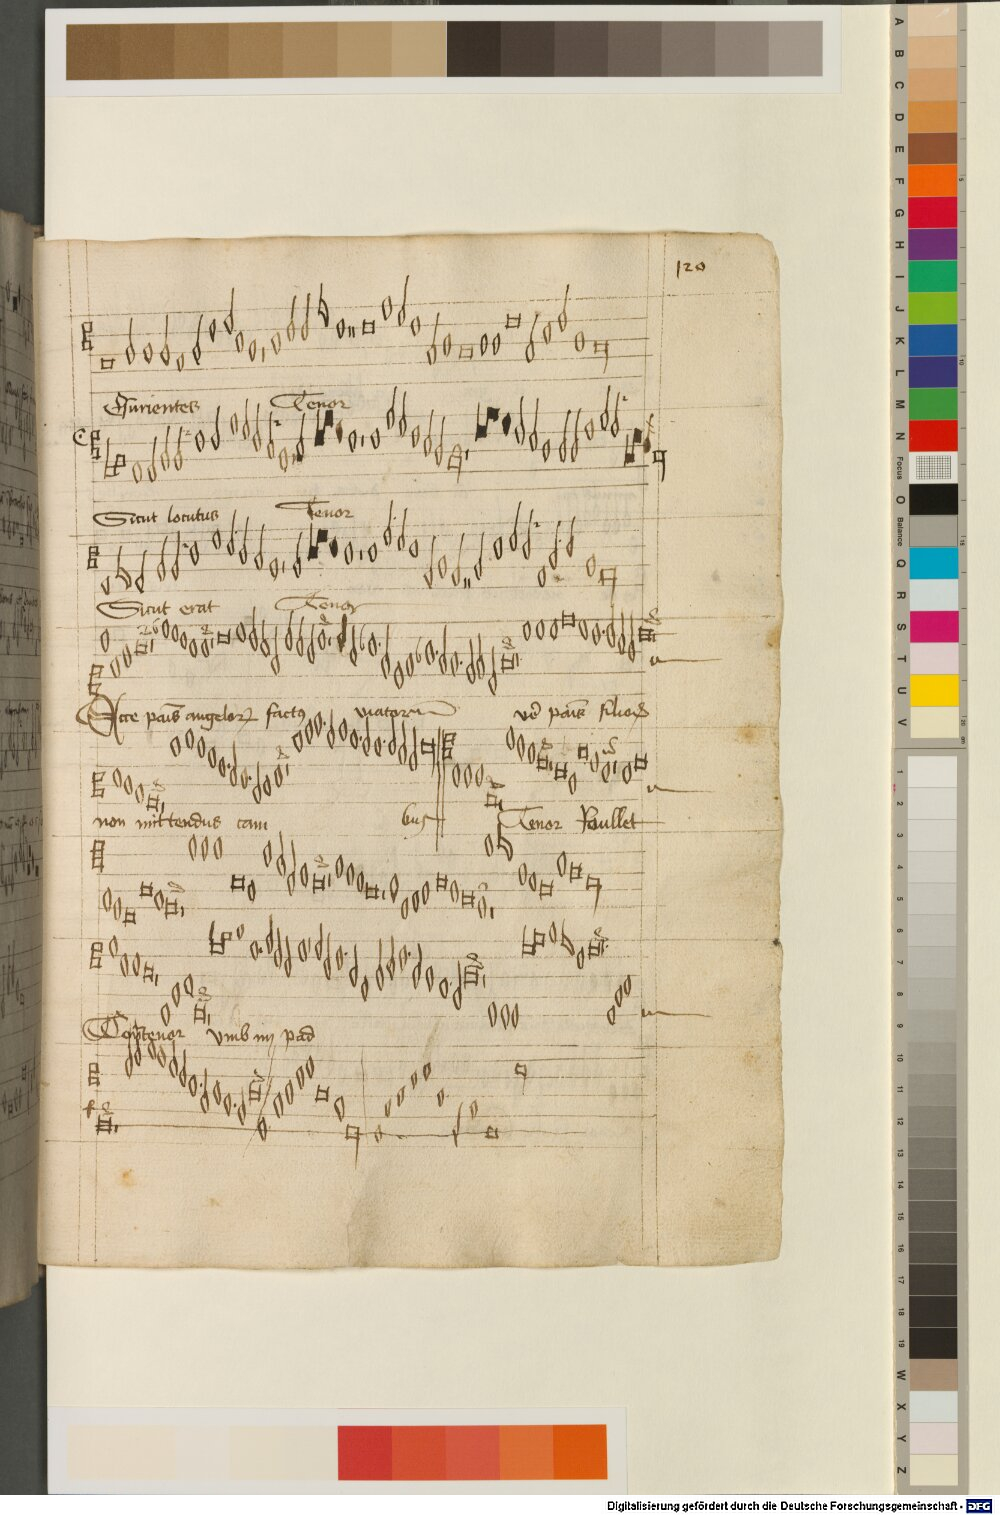 120
Esurientes Tenor
Sicut locutus Tenor
Sicut erat Tenor
Ecce panis angelorum factus viatorum vere panis filiorum
non mittendus cani bus Tenor Roullet
Contratenor vmb iiij pad
A B C D E F G H I J K L M N Focus O Balance P Q R S T U V
1 2 3 4 5 6 7 8 9 10 11 12 13 14 15 16 17 18 19 W X Y Z
Digitalisierung gefördert durch die Deutsche Forschungsgemeinschaft - DFG